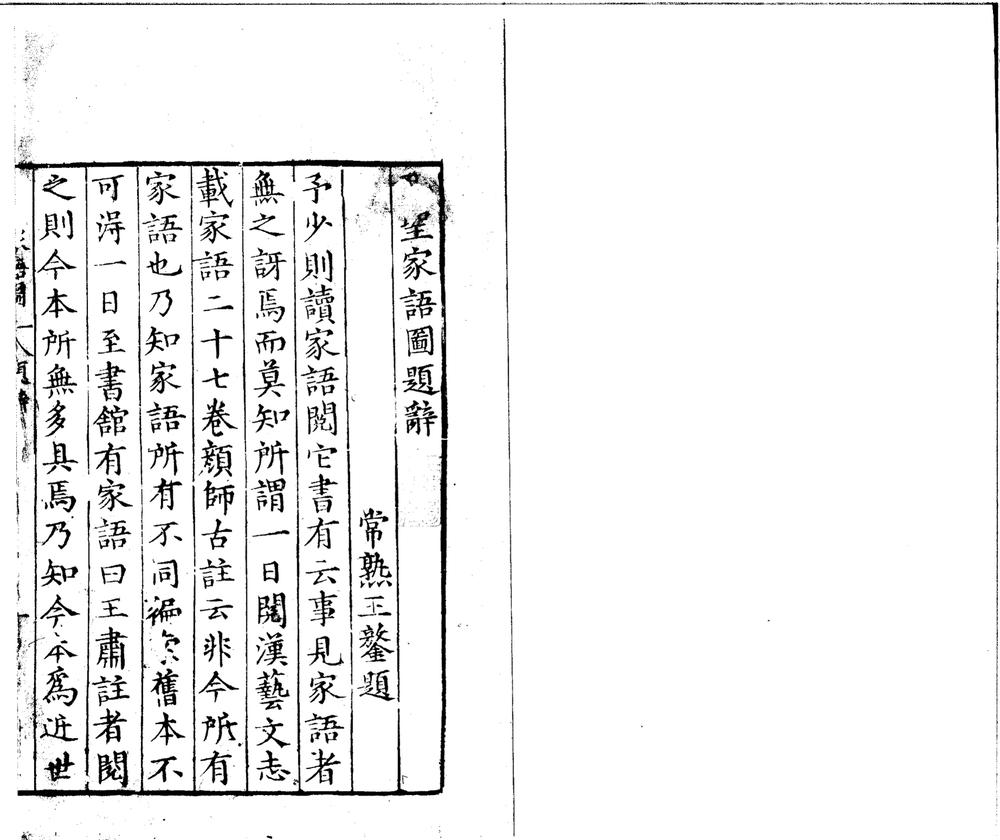 聖家語圖題辭
常熟王鏊題
予少則讀家語閱它書有云事見家語者
無之訝焉而莫知所謂一日閱漢藝文志
載家語二十七卷顔師古註云非今所有
家語也乃知家語所有不同徧舊本不
可淂一日至書舘有家語曰王肅註者閱
之則今本所無多具焉乃知今本爲近世